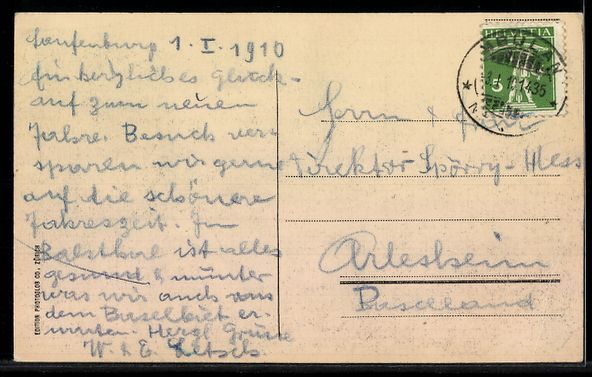 Laufenburg 1. I. 1910
Ein herzliches Glück-
auf zum neuen
Jahre. Besuch ver-
sparen wir gerne
auf die schönere
Jahreszeit. Im
Balsthal ist alles
gesund & munter
was wir auch aus
dem Baselbiet er-
warten. Herzl Grüsse
W. & E. Letsch
Herrn & Frau
Direktor Spörry-Hess
Arlesheim
Baselland
HELVETIA
5
EDITION PHOTOGLOB CO., ZÜRICH